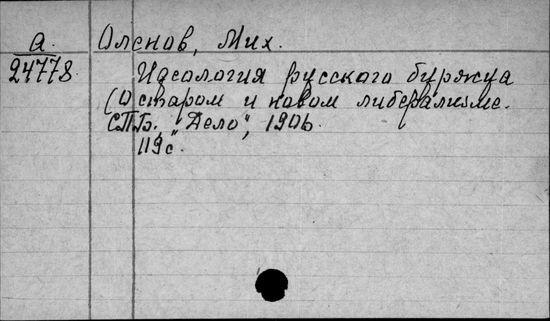 а. Оленов, Мих.
24778. Идеология русского буржуа
(О старом и новом либерализме.
СПБ., "Дело", 1906.
119с.